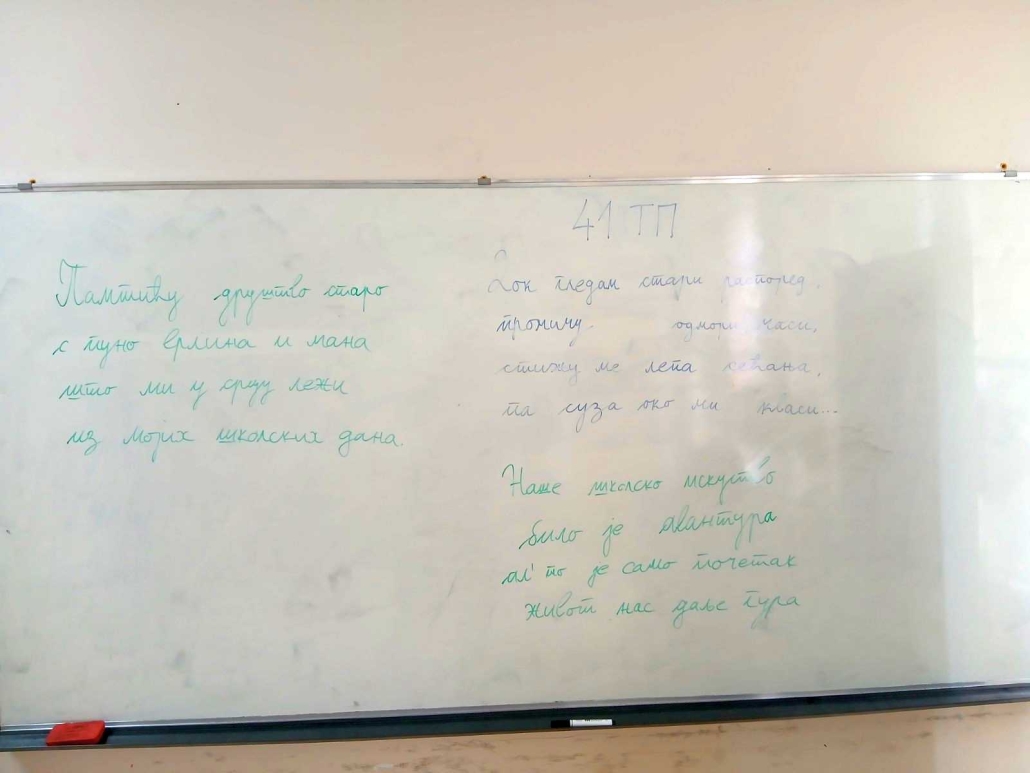 41 ТП
Памтићу друштво старо
с пуно врлина и мана
што ми у срцу лежи
из мојих школских дана.
Док гледам стари распоред,
промичу одмори часи,
стижу ме лепа сећања,
па суза око ми кваси...
Наше школско искуство
било је авантура
ал' то је само почетак
живот нас даље гура